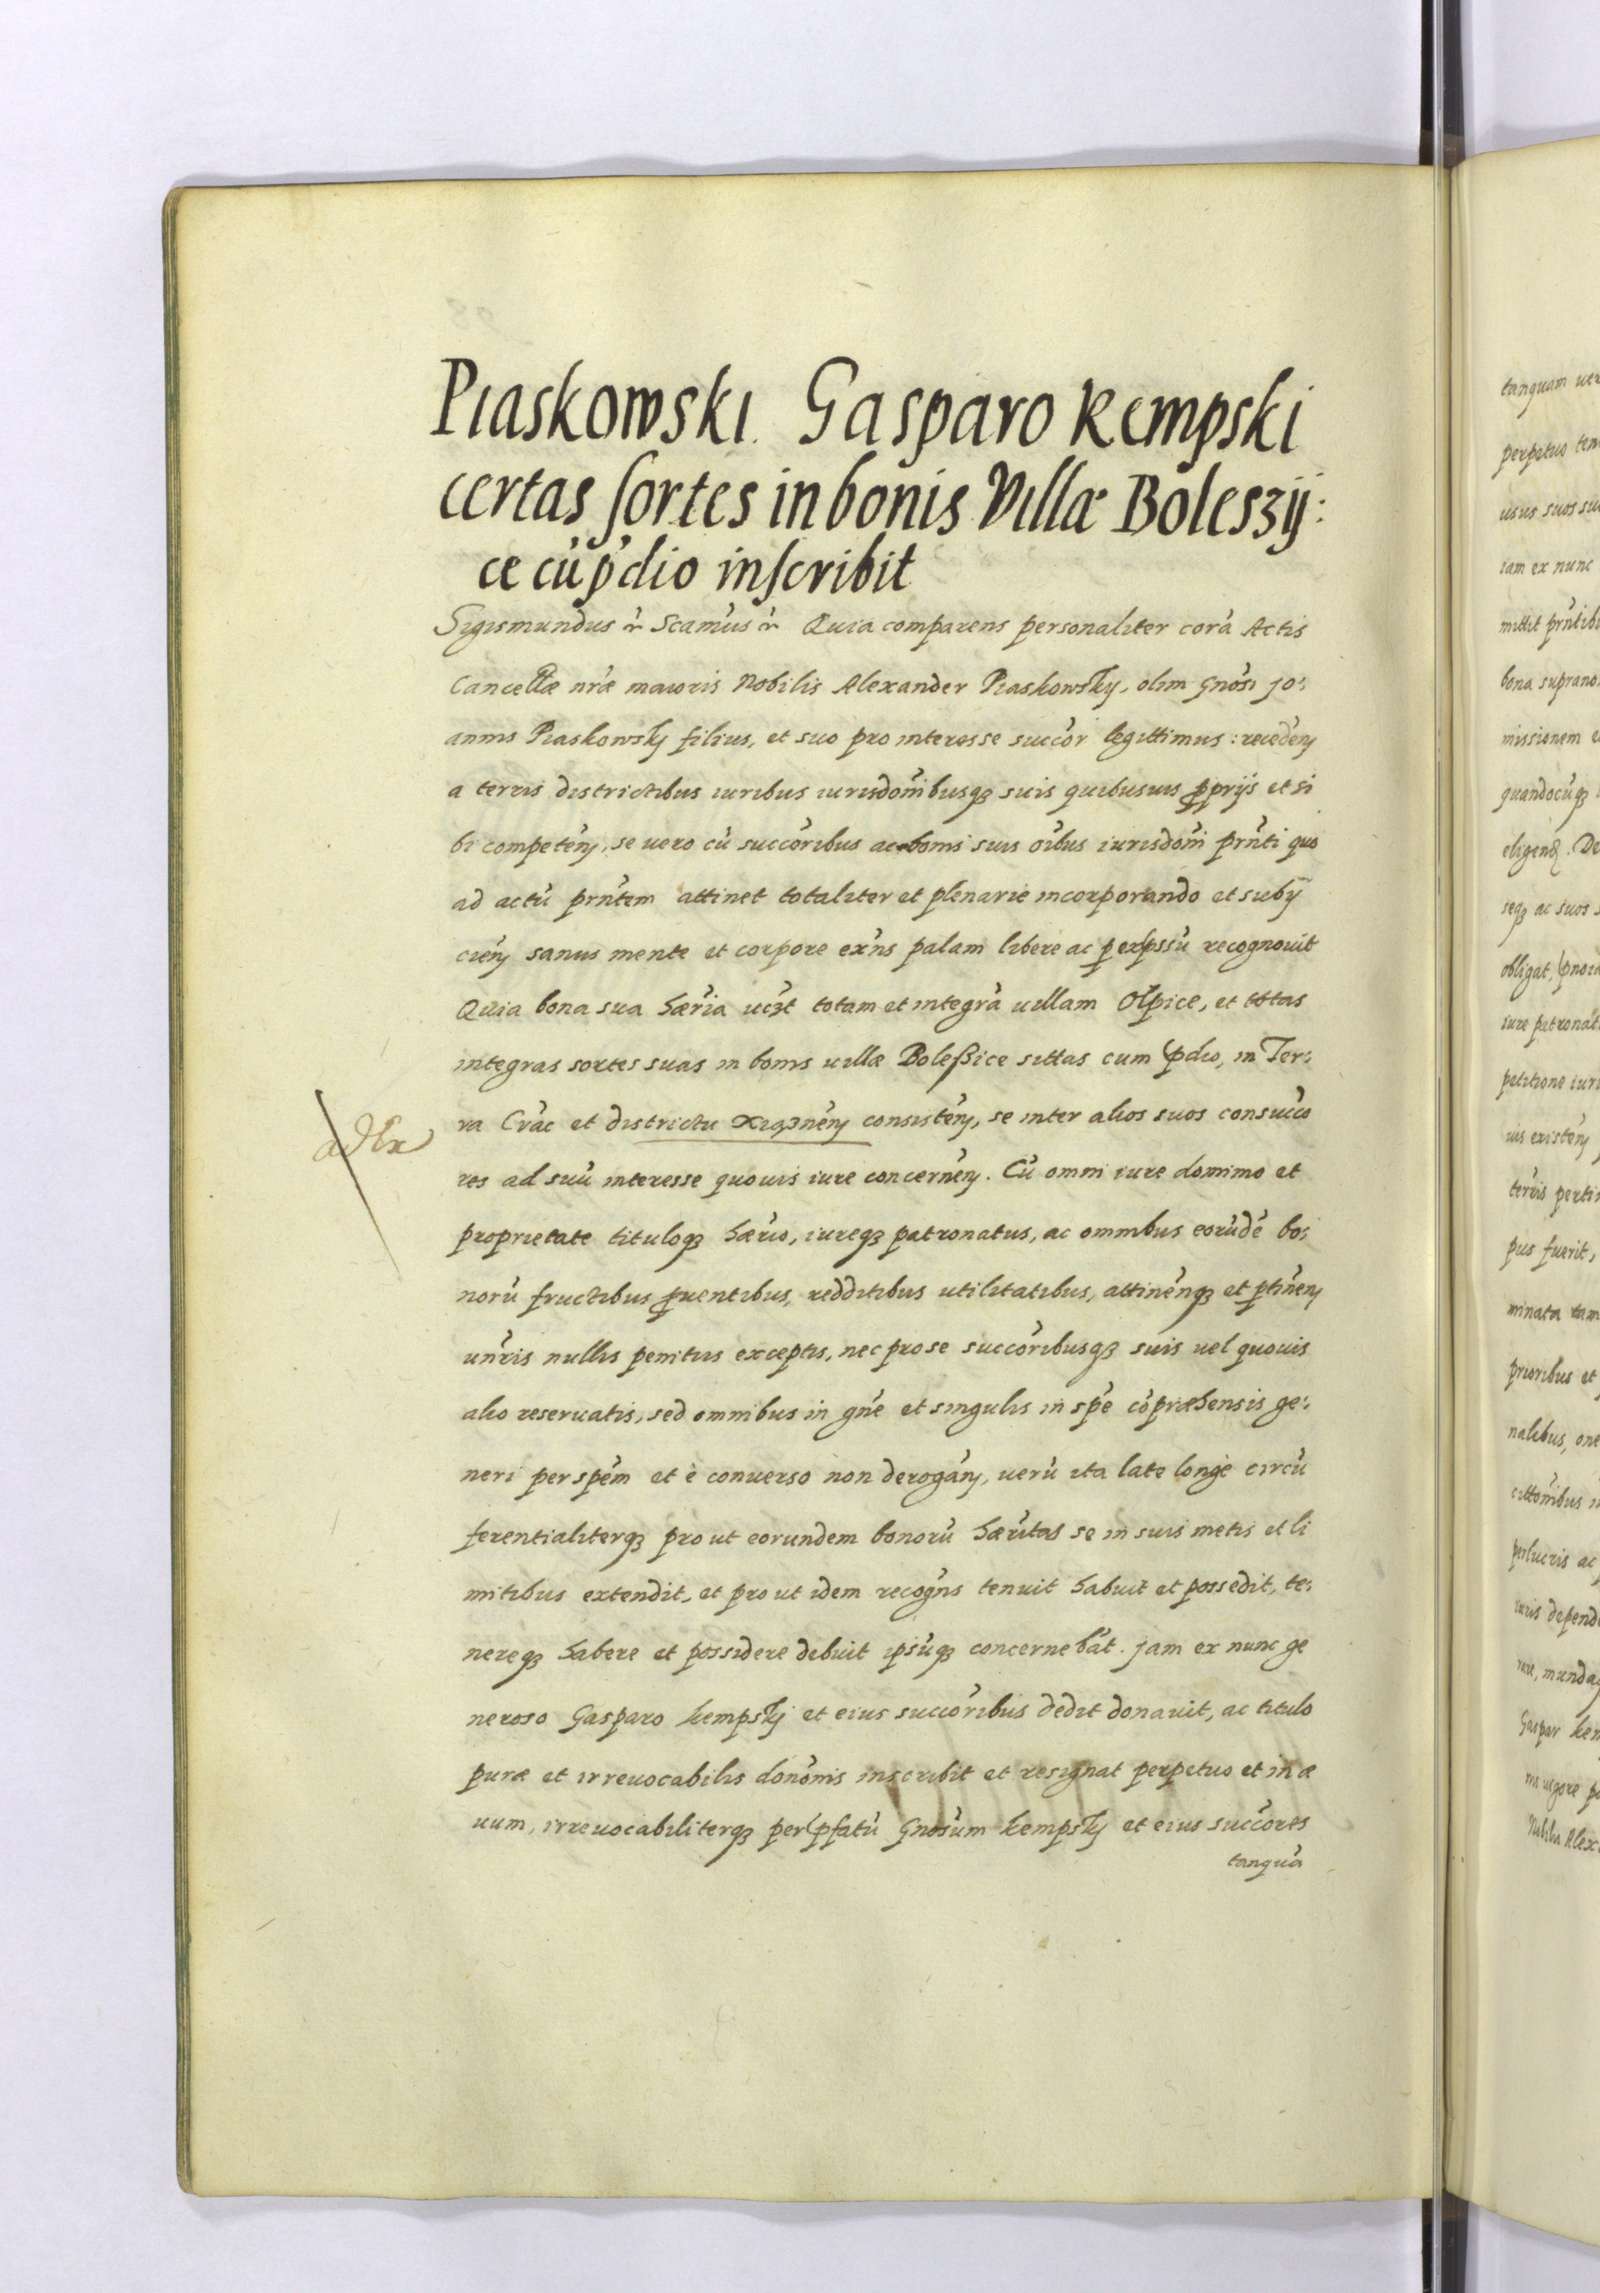 Piaskowski Gasparo Kempski
certas sortes in bonis Villæ Boleszÿ:
ce cu̓ p̓dio inscribit
Sigismundus &r Scam̓us &r Quia comparens personaliter cora̓ Actis
Cancellæ nr̓æ maioris Nobilis Alexander Piaskowsky, olim Gno̓si Jo:
annis Piaskowsky filius, et suo pro interesse succo̓r legittimus: recede̓ń
a terris districtibus iuribus iurisdo̓nibusqꝫ suis quibusuis ꝓprijs et si
bi compete̓ń, se uero cu̓ succo̓ribus ac bonis suis oi̓bus iurisdo̓ni prn̓ti quo
ad actu̓ prn̓tem attinet totaliter et plenarie incorporando et subij
cie̓ń sanus mente et corpore exn̓s palam libere ac ꝑ expssu̓ recognouit
Quia bona sua hær̓ia uczt totam et integra̓ uillam Olpice, et totas
integras sortes suas in bonis uillæ Boleßice sittas cum p̓dio, in Ter:
ra Cra̓c et districtu Xiązne̓ń consiste̓ń, se inter alios suos consucco
res ad suu̓ interesse quouis iure concerne̓ń. Cu̓ omni iure dominio et
proprietate tituloqꝫ hær̓io, iureqꝫ patronatus, ac omnibus eoru̓de̓ bo:
noru̓ fructibus ꝓuentibus, redditibus utilitatibus, attine̓nqꝫ et ꝑtine̓ń
un̓ris nullis penitus exceptis, nec pro se succo̓ribusqꝫ suis uel quouis
alio reseruatis, sed omnibus in gn̓e et singulis in sp̓e co̓præhensis ge:
neri per spe̓m et è conuerso non deroga̓ń, ueru̓ ita late longè circu̓
ferentialiterqꝫ pro ut eorundem bonoru̓ hær̓itas se in suis metis et li
mitibus extendit, et pro ut idem recogn̓s tenuit habuit et possedit, te:
nereqꝫ habere et possidere debuit ipsu̓qꝫ concerneba̓t. Jam ex nunc ge
neroso Gasparo Kempsky et eius succo̓ribus dedit donauit, ac titulo
puræ et irreuocabilis dono̓nis inscribit et resignat perpetuo et in æ
uum, irreuocabiliterqꝫ per p̓fatu̓ Gno̓sum Kempsky et eius succo̓res
tanqua̓
tanquam
perpetuo
usus suos
iam ex nunc
mittit prn̓tibus
missionem
obligat,
pus fuerit,
minata
prioribus et
Gaspar